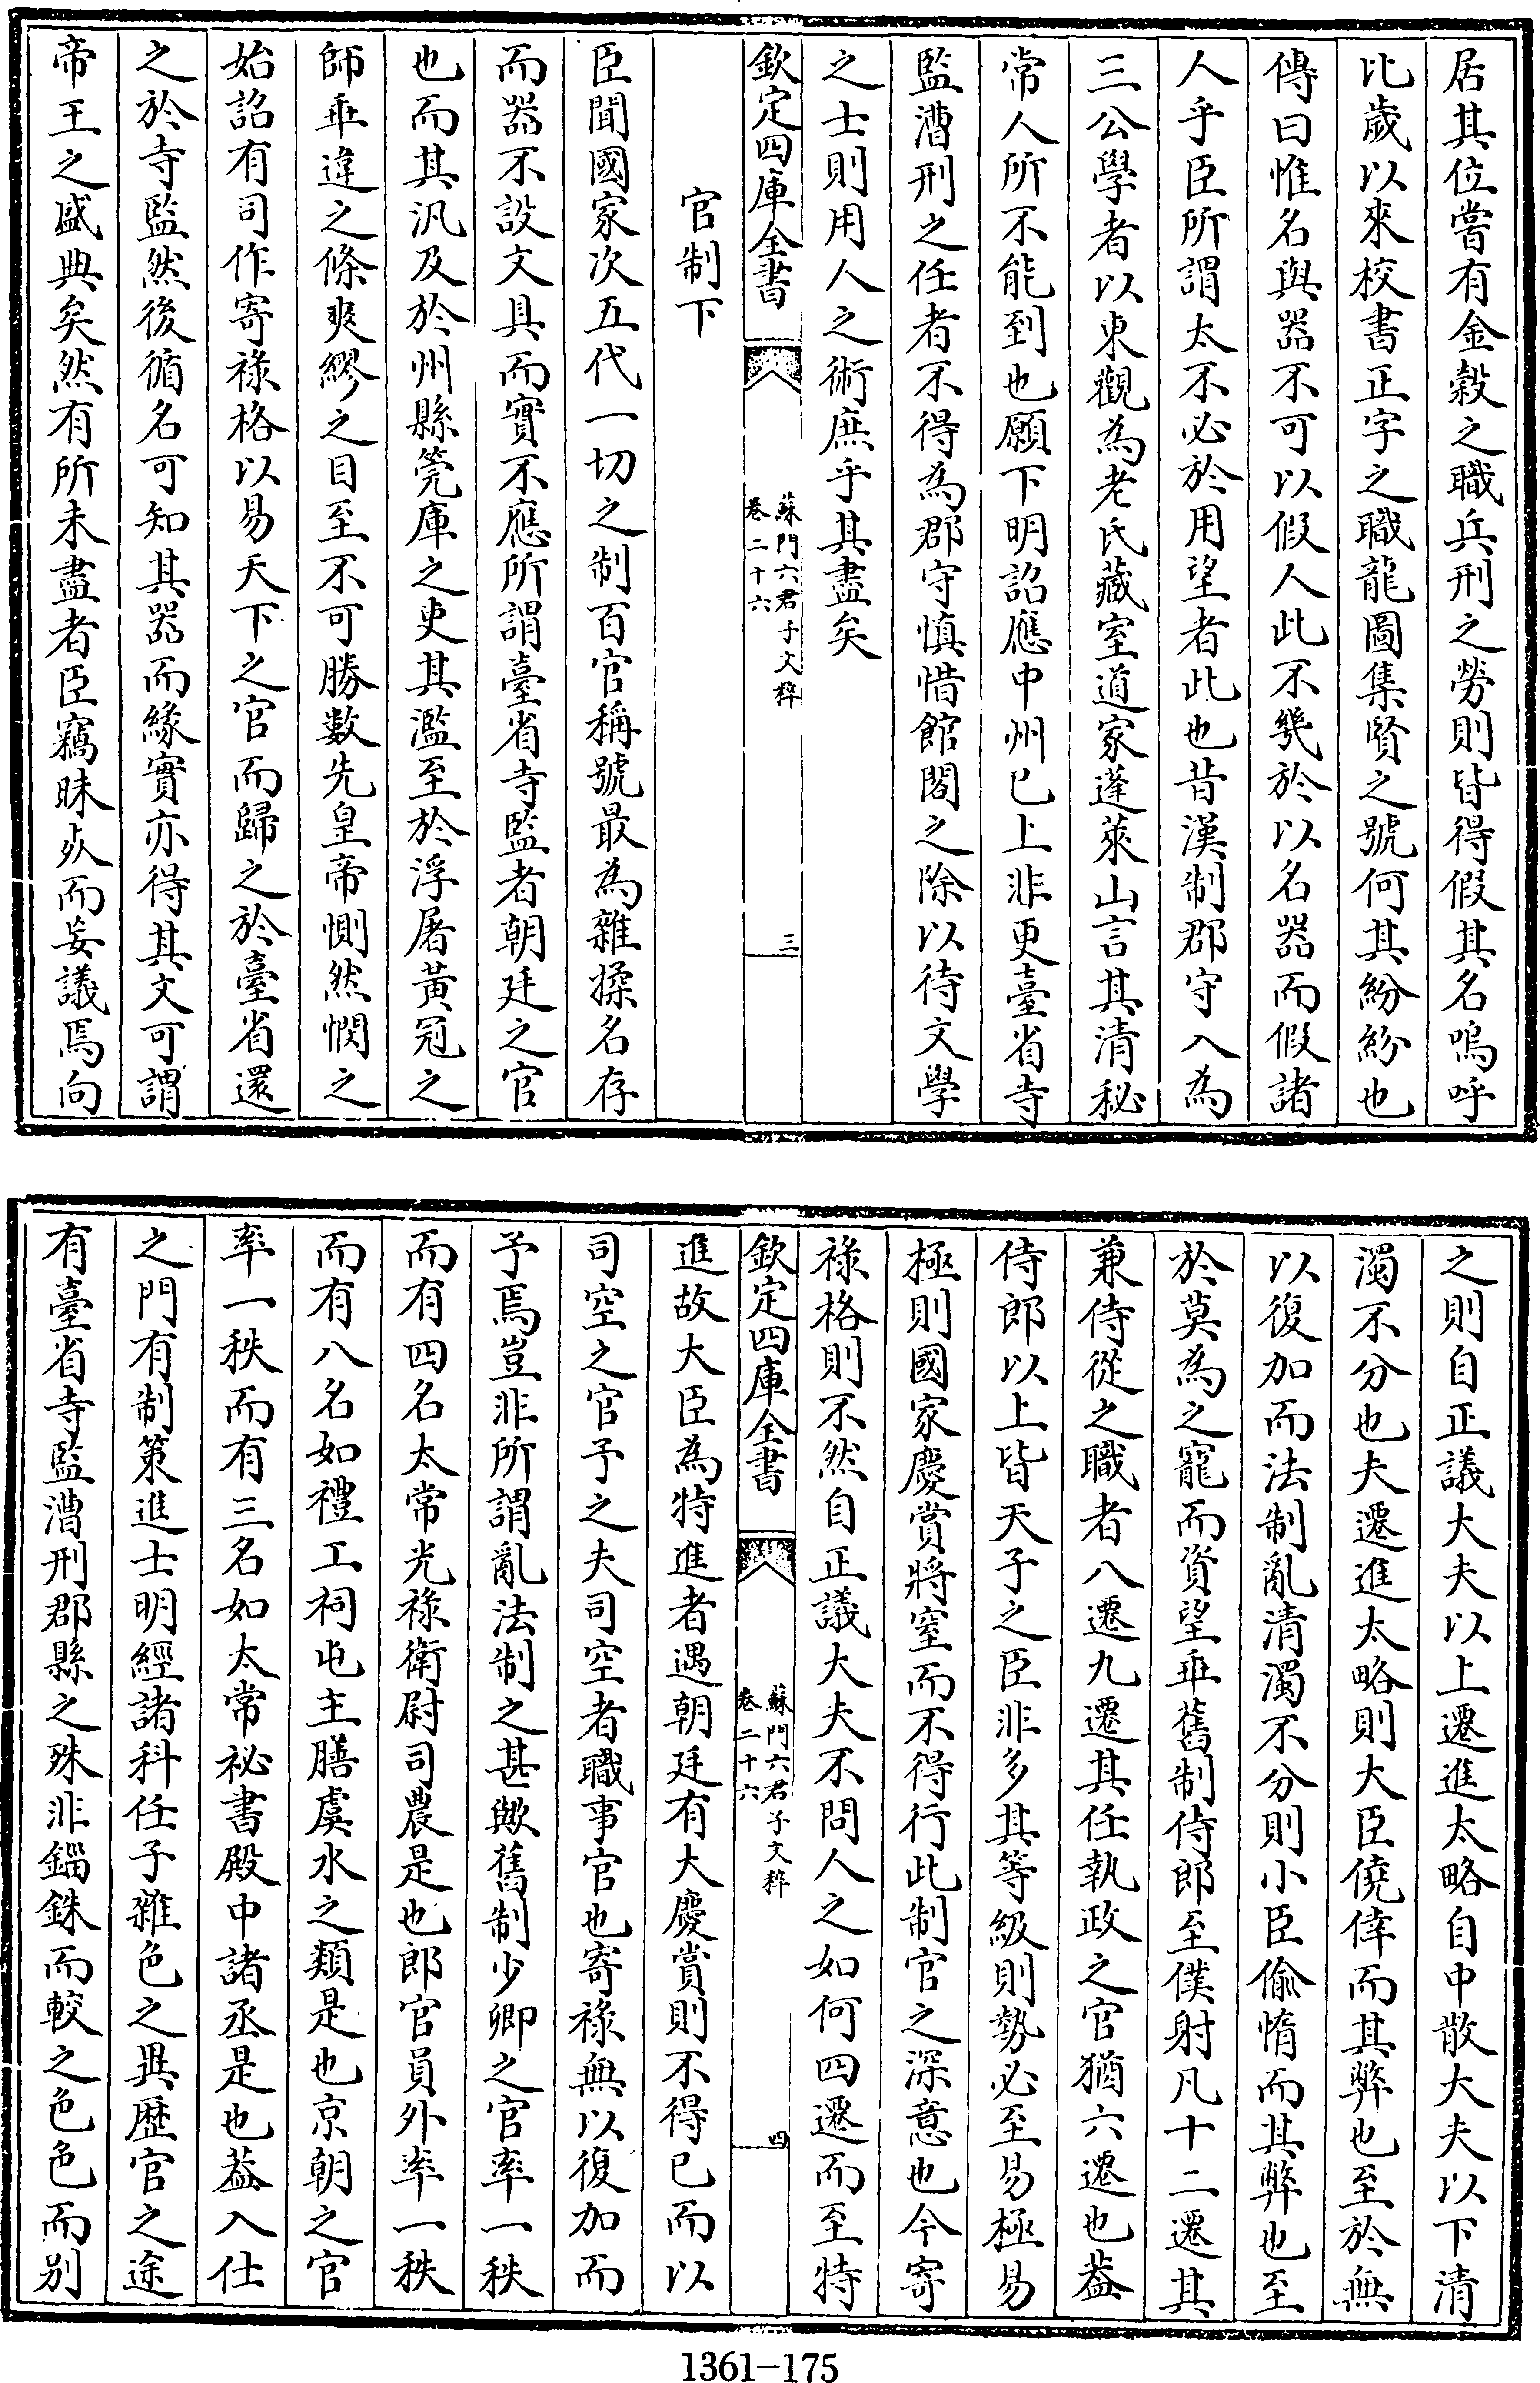 居其位嘗有金穀之職兵刑之勞則皆得假其名嗚呼
比歲以來校書正字之職龍圖集賢之號何其紛紛也
傳曰惟名與器不可以假人此不幾於以名器而假諸
人乎臣所謂太不必於用望者此也昔漢制郡守入為
三公學者以東觀為老氏藏室道家蓬萊山言其清秘
常人所不能到也願下明詔應中州已上非更臺省寺
監漕刑之任者不得為郡守慎惜館閣之除以待文學
之士則用人之術庶乎其盡矣
欽定四庫全書
蘇門六君子文粹
卷二十六
三
官制下
臣聞國家次五代一切之制百官稱號最為雜揉名存
而器不設文具而實不應所謂臺省寺監者朝廷之官
也而其汎及於州縣筦庫之吏其濫至於浮屠黃冠之
師乖違之條爽繆之目至不可勝數先皇帝惻然憫之
始詔有司作寄祿格以易天下之官而歸之於臺省還
之於寺監然後循名可知其器而緣實亦得其文可謂
帝王之盛典矣然有所未盡者臣竊昧死而妄議焉向
之則自正議大夫以上遷進太略自中散大夫以下清
濁不分也夫遷進太略則大臣僥倖而其弊也至於無
以復加而法制亂清濁不分則小臣偷惰而其弊也至
於莫為之寵而資望乖舊制侍郎至僕射凡十二遷其
兼侍從之職者八遷九遷其任執政之官猶六遷也葢
侍郎以上皆天子之臣非多其等級則勢必至易極易
極則國家慶賞將窒而不得行此制官之深意也今寄
祿格則不然自正議大夫不問人之如何四遷而至特
欽定四庫全書
蘇門六君子文粹
卷二十六
四
進故大臣為特進者遇朝廷有大慶賞則不得已而以
司空之官予之夫司空者職事官也寄祿無以復加而
予焉豈非所謂亂法制之甚歟舊制少卿之官率一秩
而有四名太常光祿衛尉司農是也郎官員外率一秩
而有八名如禮工祠屯主膳虞水之類是也京朝之官
率一秩而有三名如太常祕書殿中諸丞是也葢入仕
之門有制策進士明經諸科任子雜色之異歷官之途
有臺省寺監漕刑郡縣之殊非錙銖而較之色色而別
1361-175